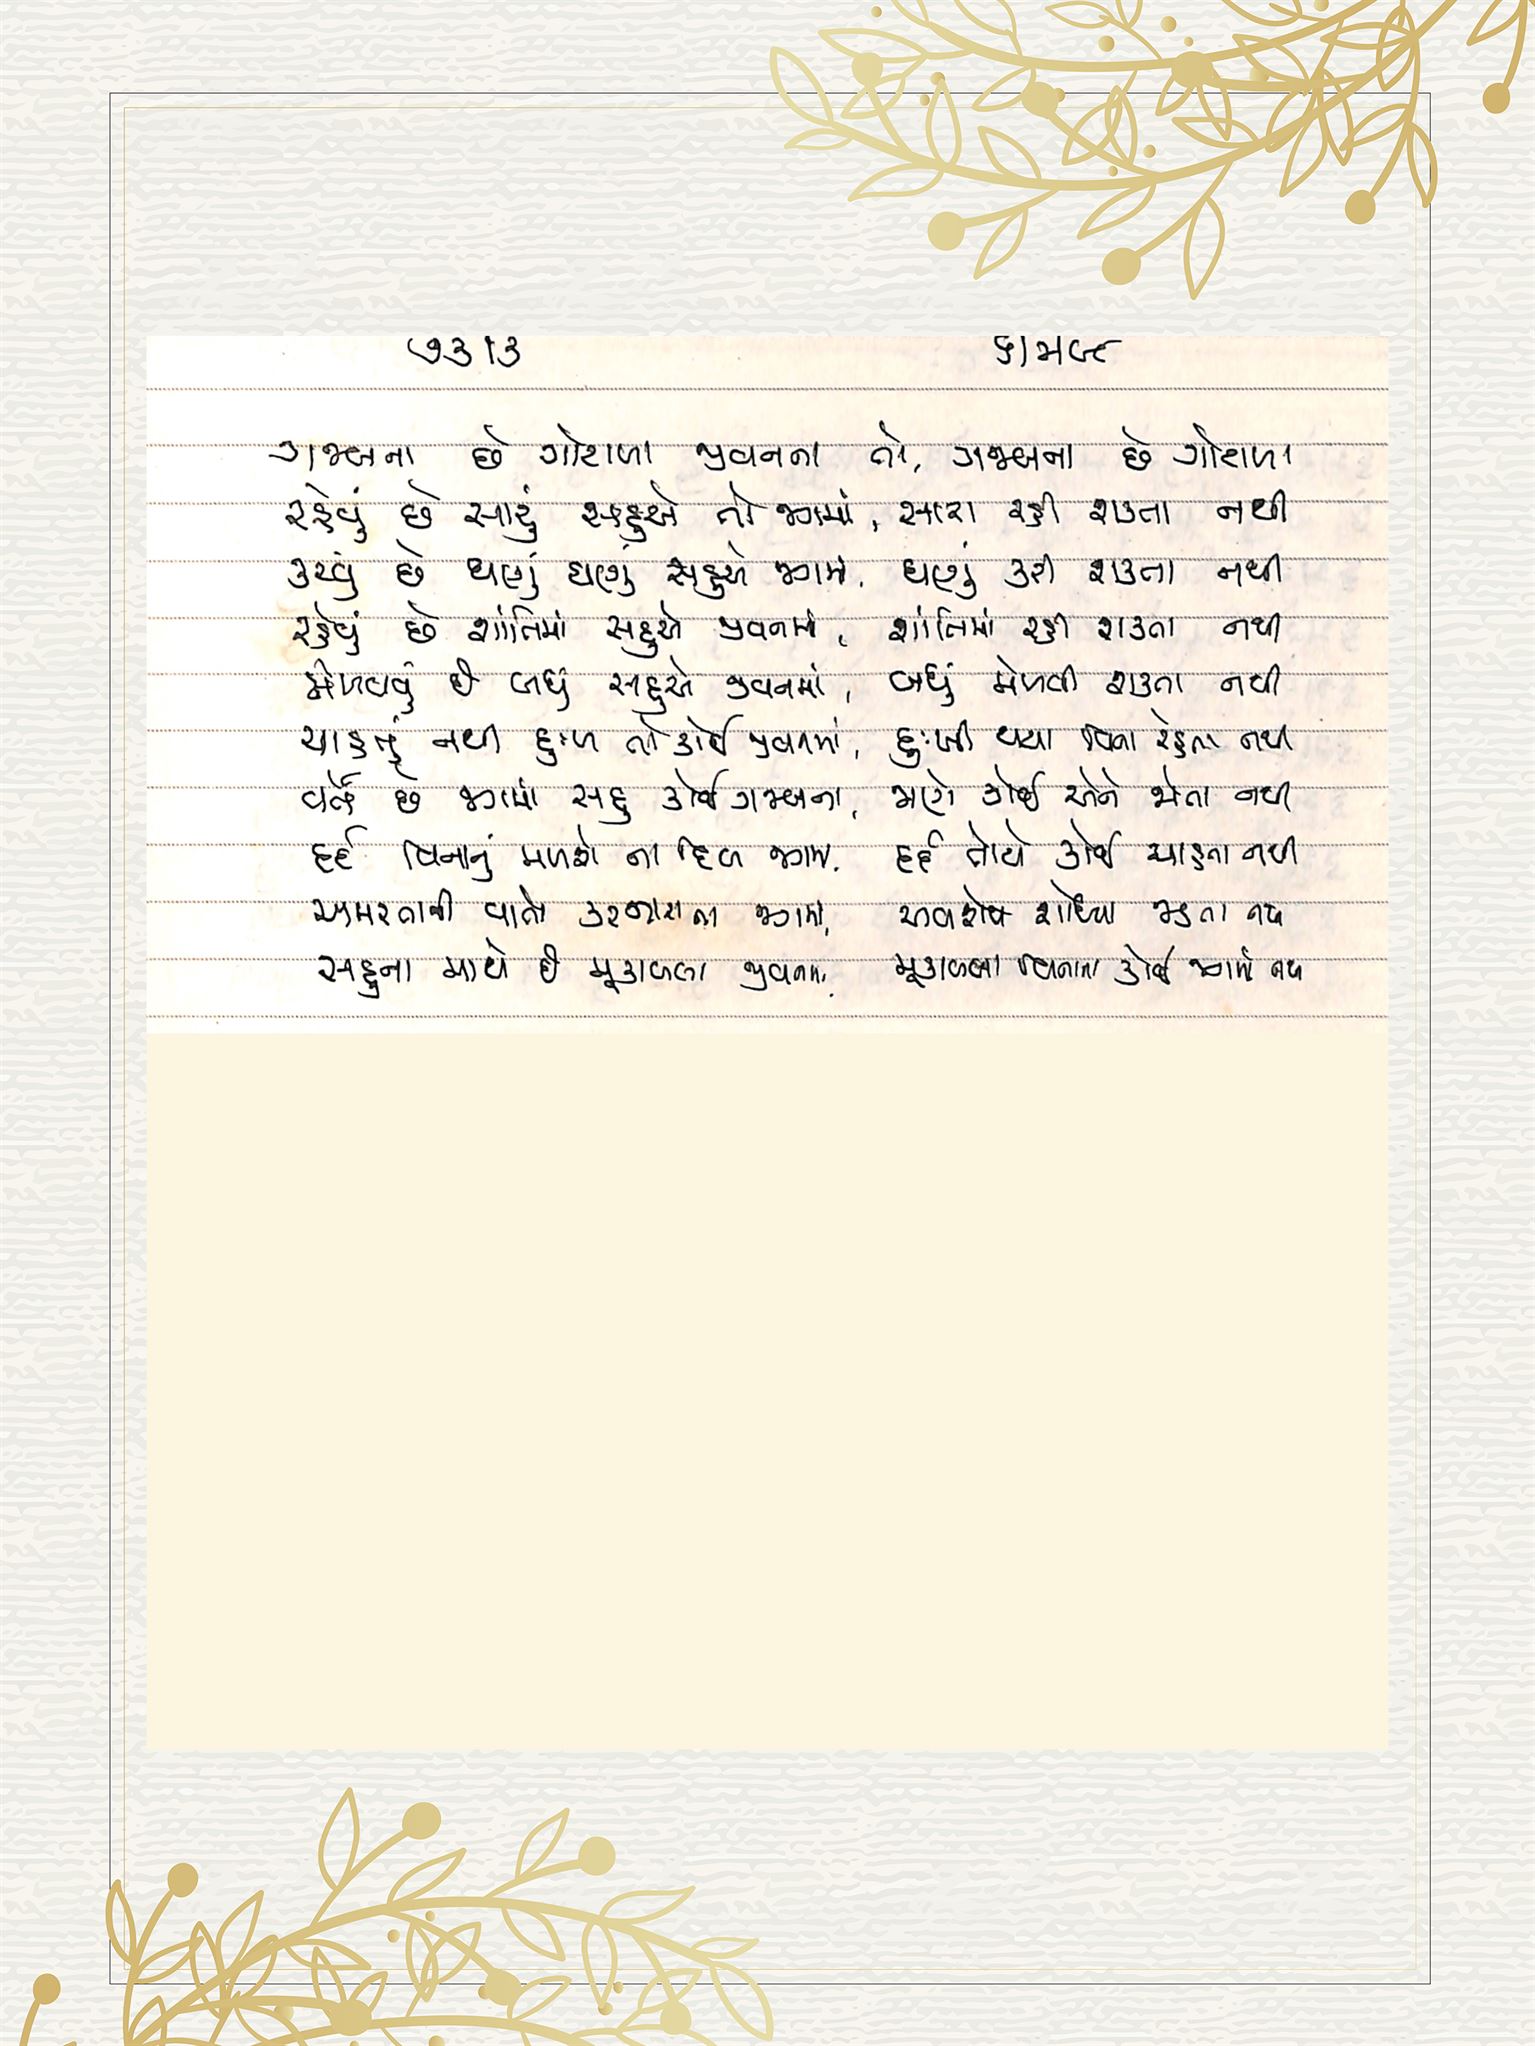 ૭૩૧૩ કામળ
ગજબના છે ગોટાળા જીવનના તો, ગજબના છે ગોટાળા
રહેવું છે સારું સહુએ તો જગમાં, સારા રહી શકતા નથી
કરવું છે ઘણું ઘણું સહુએ જગમાં, ઘણું કરી શકતા નથી
રહેવું છે શાંતિમાં સહુએ જીવનમાં, શાંતિમાં રહી શકતા નથી
મેળવવું છે બધું સહુએ જીવનમાં, બધું મેળવી શકતા નથી
ચાહતું નથી દુઃખ તો કોઈ જીવનમાં, દુઃખી થયા વિના રહેતા નથી
વર્તે છે જગમાં સહુ કોઈ ગજબના, જાણે કોઈ એને જોતા નથી
દર્દ વિનાનું મળશે ના દિલ જગમાં, દર્દ તોયે કોઈ ચાહતા નથી
અમરતાની વાતો કરનારાના જગમાં, અવશેષ શોધ્યા જડતા નથી
સહુના માથે છે મૂકાબલા જીવનમાં, મૂકાબલા વિનાના કોઈ જગમાં નથી